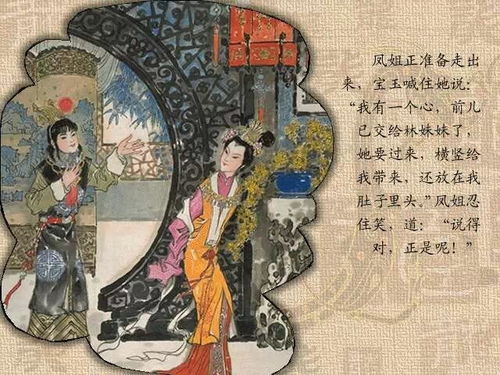 凤姐正准备走出
来，宝玉喊住她说：
“我有一个心，前儿
已交给林妹妹了，
她要过来，横竖给
我带来，还放在我
肚子里头。”凤姐忍
住笑，道：“说得
对，正是呢！”